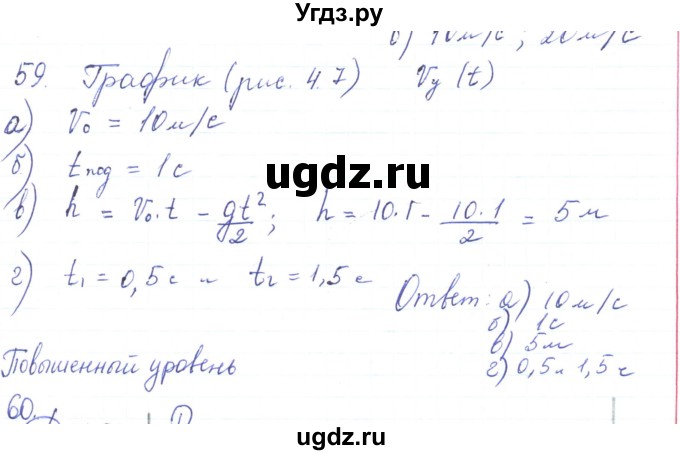 Угдз.ру
б) 10 м/с ; 20 м/с
59. График (рис. 4.7) Vy (t)
а) V₀ = 10 м/с
б) tпод = 1 с
в) h = V₀·t - gt²/2; h = 10·1 - 10·1/2 = 5 м
г) t₁ = 0,5 с и t₂ = 1,5 с
Ответ: а) 10 м/с
б) 1 с
в) 5 м
г) 0,5 и 1,5 с
Повышенный уровень
60.
ugdz.ru
ugdz.ru
ugdz.ru